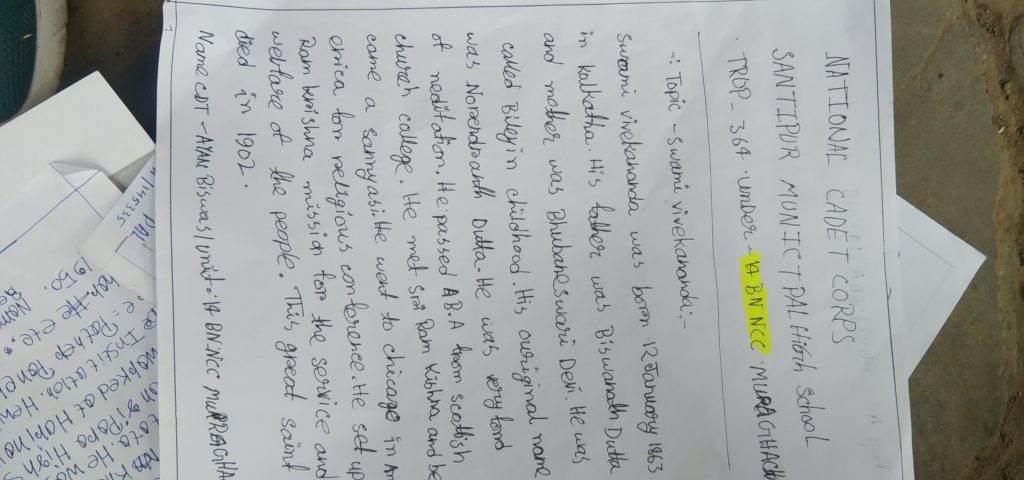 NATIONAL CADET CORPS
SANTIPUR MUNICIPAL HIGH School
TROP - 364 · Umber - 17 BN NCC MURAGHACHH
-: Topic - Swami vivekananda:-
Swami vivekananda was born 12 January 1863
in kalkatha. His father was Biswanath Dutta
and mother was Bhubaneswari Devi. He was
called Biley in childhood. His ouriginal name
was Norendroanth Dutta. He was very fond
of meditation. He passed A B.A from scottish
church college. He met Sri Ram Kishna and be
came a sannyasi. He went to chicago in Am
erica for religious conference. He set up
Ram krishna mission for the service and
welfare of the people. This great saint
died in 1902.
Name CDT - AYAN Biswas/Unit - 17 BN NCC MURRAGHA
1145335
PAL
1950.
Name
etc.
Institution
worked at
He was
High